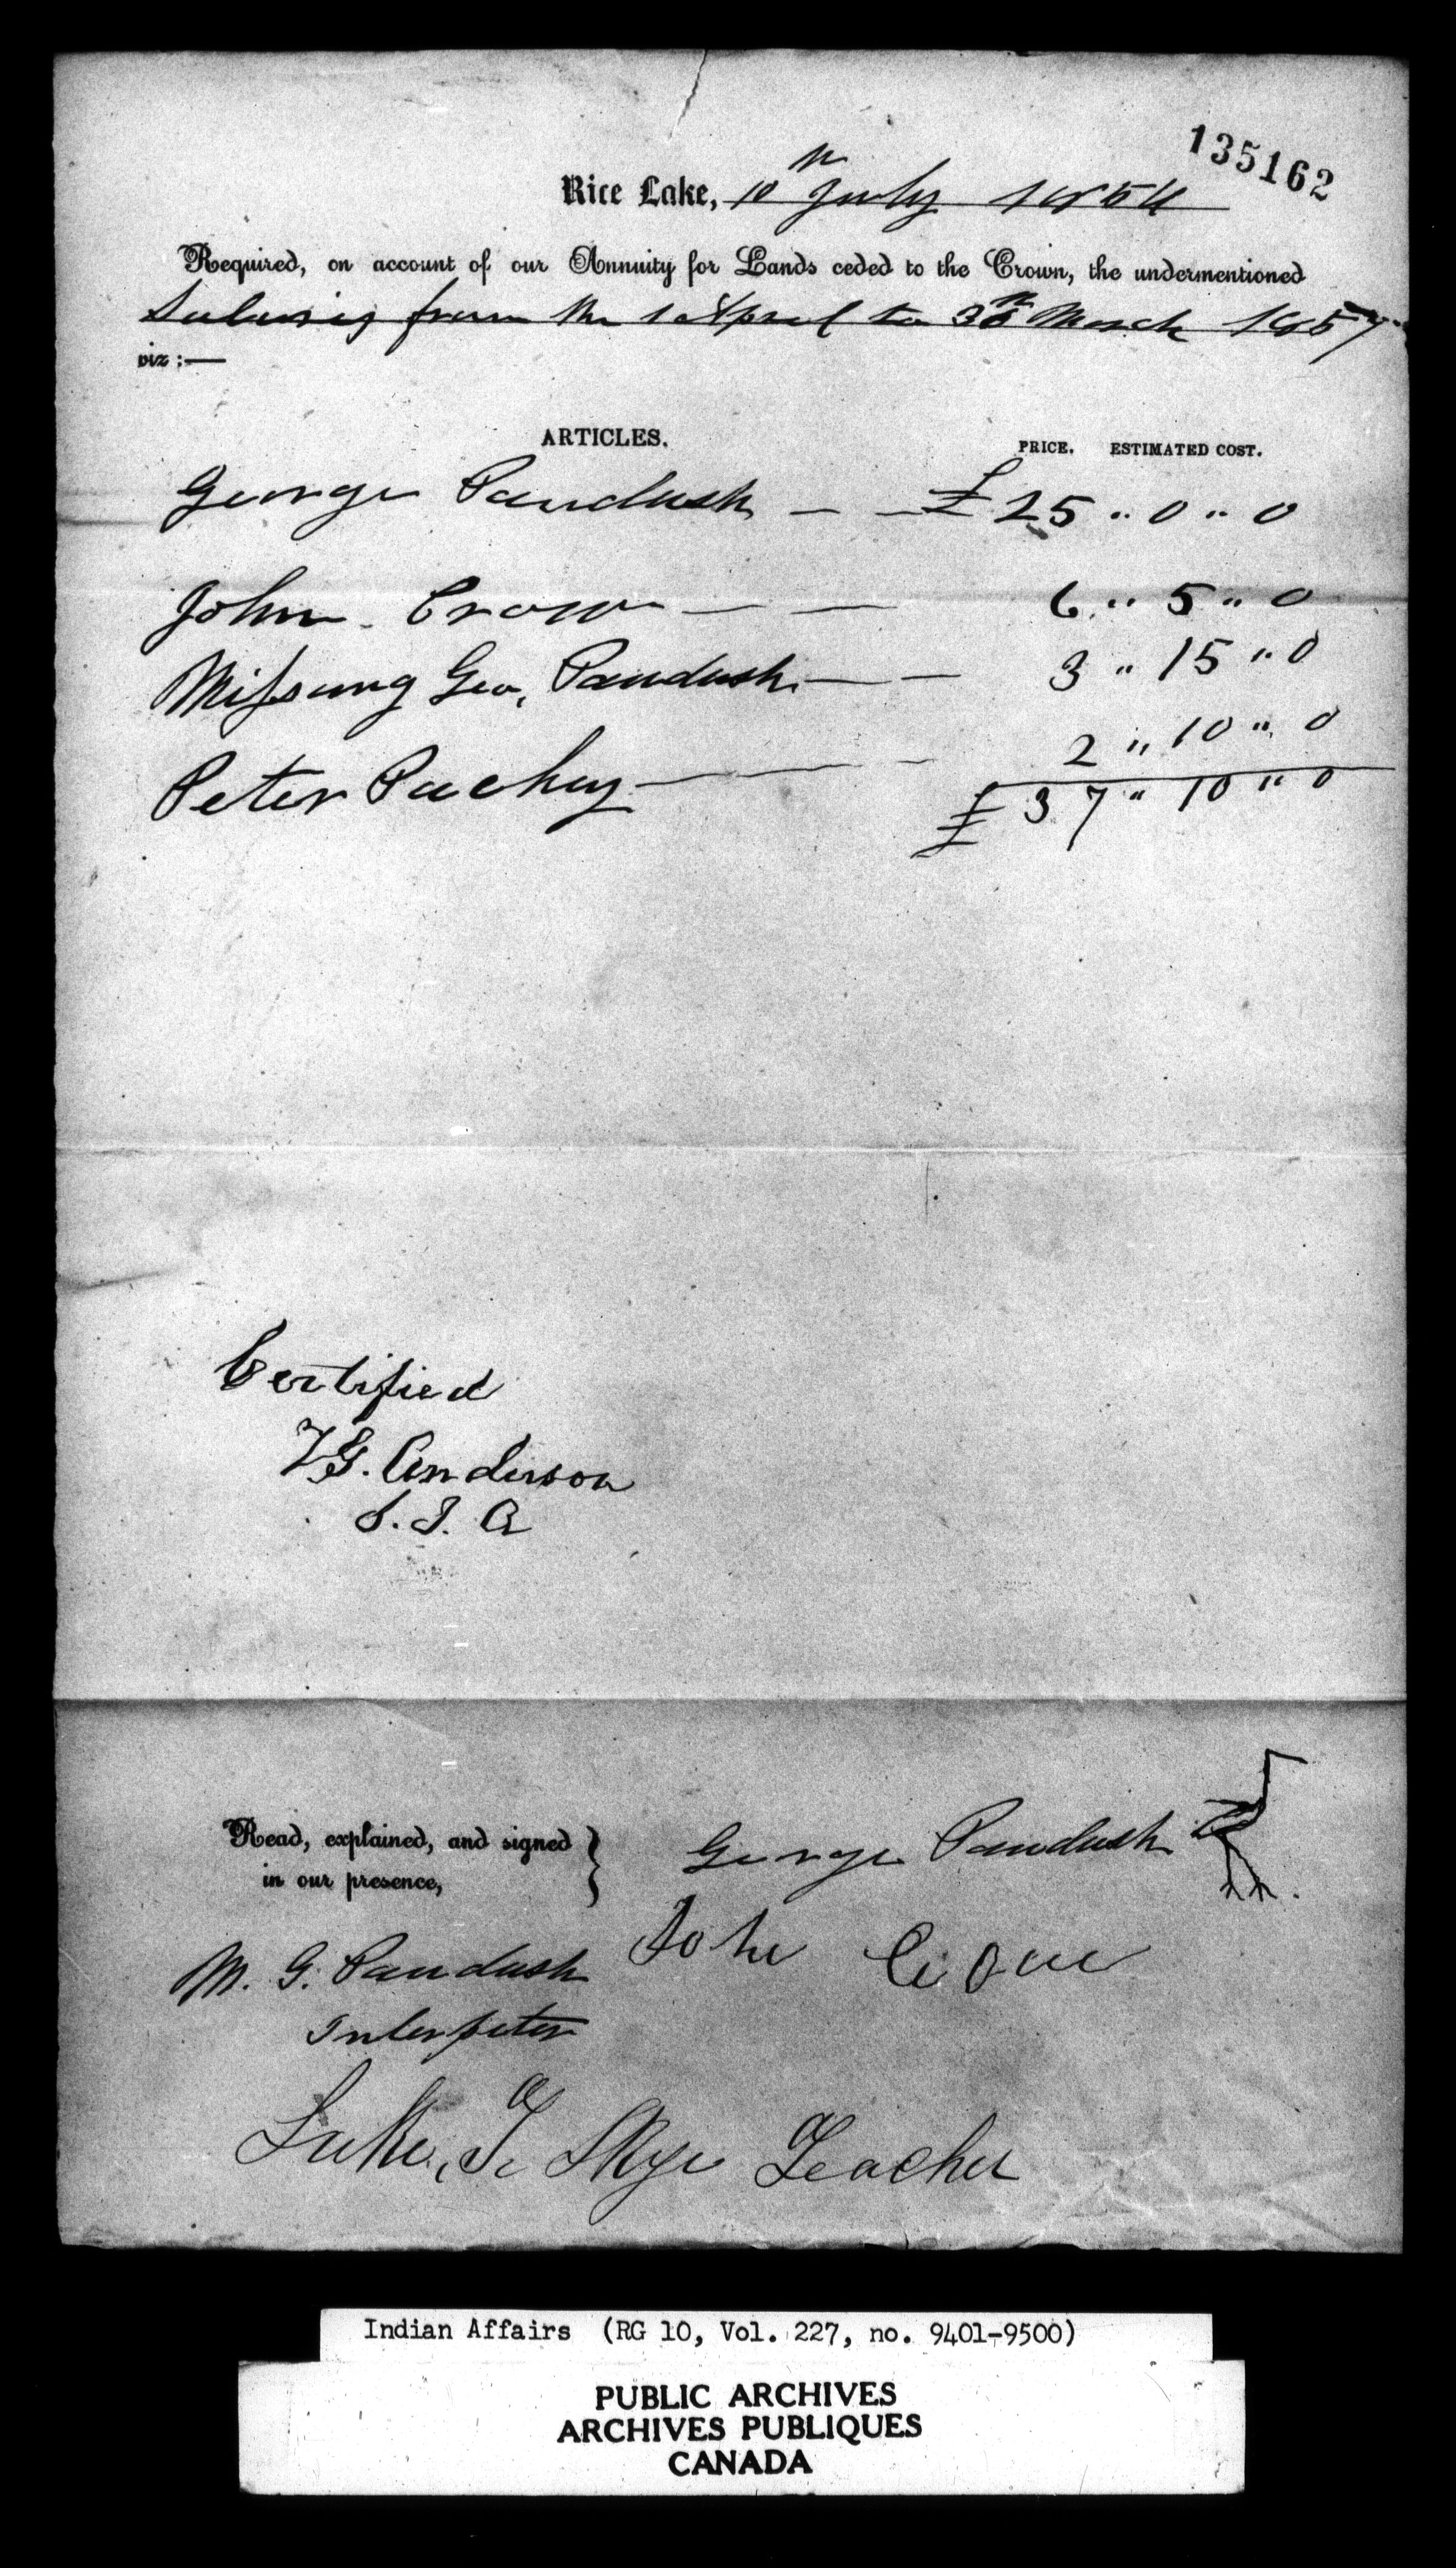 135162
Rice Lake, 10th July 1856
Required, on account of our Annuity for Lands ceded to the Crown, the undermentioned
Salaries from the 1 April to 30th March 1857
viz :—
ARTICLES. PRICE. ESTIMATED COST.
George Paudash — — £ 25 " 0 " 0
John Crow — — 6 " 5 " 0
Missung Geo. Paudash — — 3 " 15 " 0
Peter Pachey — — — 2 " 10 " 0
£ 37 " 10 " 0
Certified
T.G. Anderson
S. I. A
Read, explained, and signed
in our presence,
George Paudash
John Crow
M. G. Paudash
Interpeter
Luke, Skye Teacher
Indian Affairs (RG 10, Vol. 227, no. 9401-9500)
PUBLIC ARCHIVES
ARCHIVES PUBLIQUES
CANADA